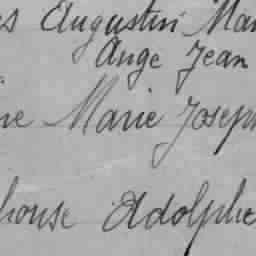 es Augustin Mar
Ange Jean
ne Marie Joseph
honse Adolphe